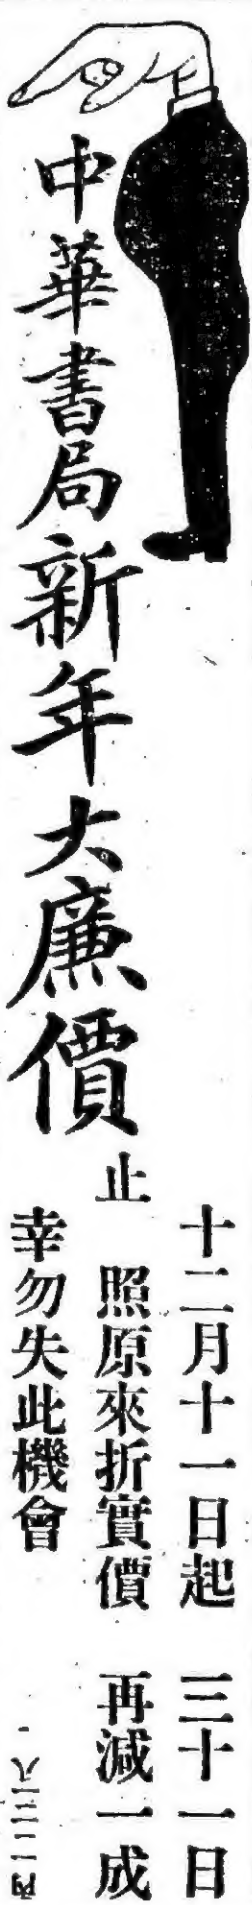 中華書局新年大廉價
十二月十一日起 三十一日
止 照原來折實價 再減一成
幸勿失此機會